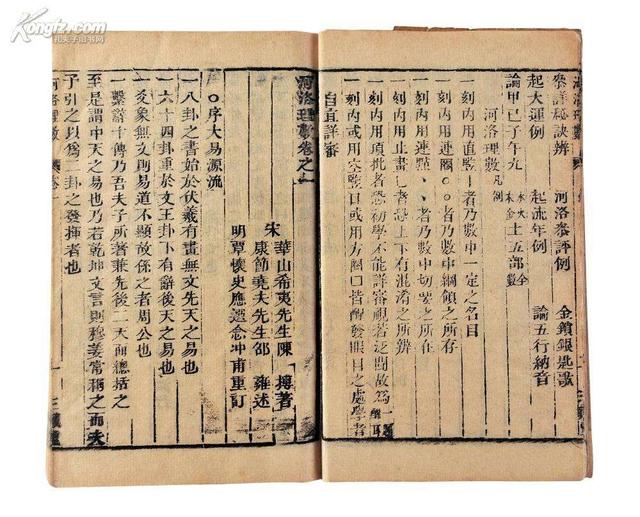 Kongfz.com
孔夫子旧书网
河洛理數
參詳秘訣辨　河洛參評例　金鎖銀匙歌
起大運例　起流年例　論五行納音
論甲巳子午九　水火木金土五部全數
河洛理數凡例
一刻内用直豎｜者乃數中一定之名目
一刻内用連圈○○者乃數中綱領之所存
一刻内用連點、、者乃數中切要之所在
一刻内用止畫一者恐上下有混淆之所辨
一刻内用項批者恐初學不能詳審視若泛閱故爲一題醒耳
一刻内或用空豎▯或用方圈囗皆醒發眼目之處學者
自宜詳審
河洛理數卷之一
宋　華山希夷先生陳　摶著
康節堯夫先生邵　雍述
明　覃懷史應選念冲甫重訂
○序大易源流
一八卦之書始於伏羲有畫無文先天之易也
一六十四卦重於文王卦下有辭後天之易也
一爻象無文則易道不顯故係之者周公也
一繫辭十傳乃吾夫子所著兼先後二天而總括之
至是謂中天之易也乃若乾坤文言則穆姜嘗稱之而夫
子引之以爲二卦之發揮者也
河洛理數　卷一